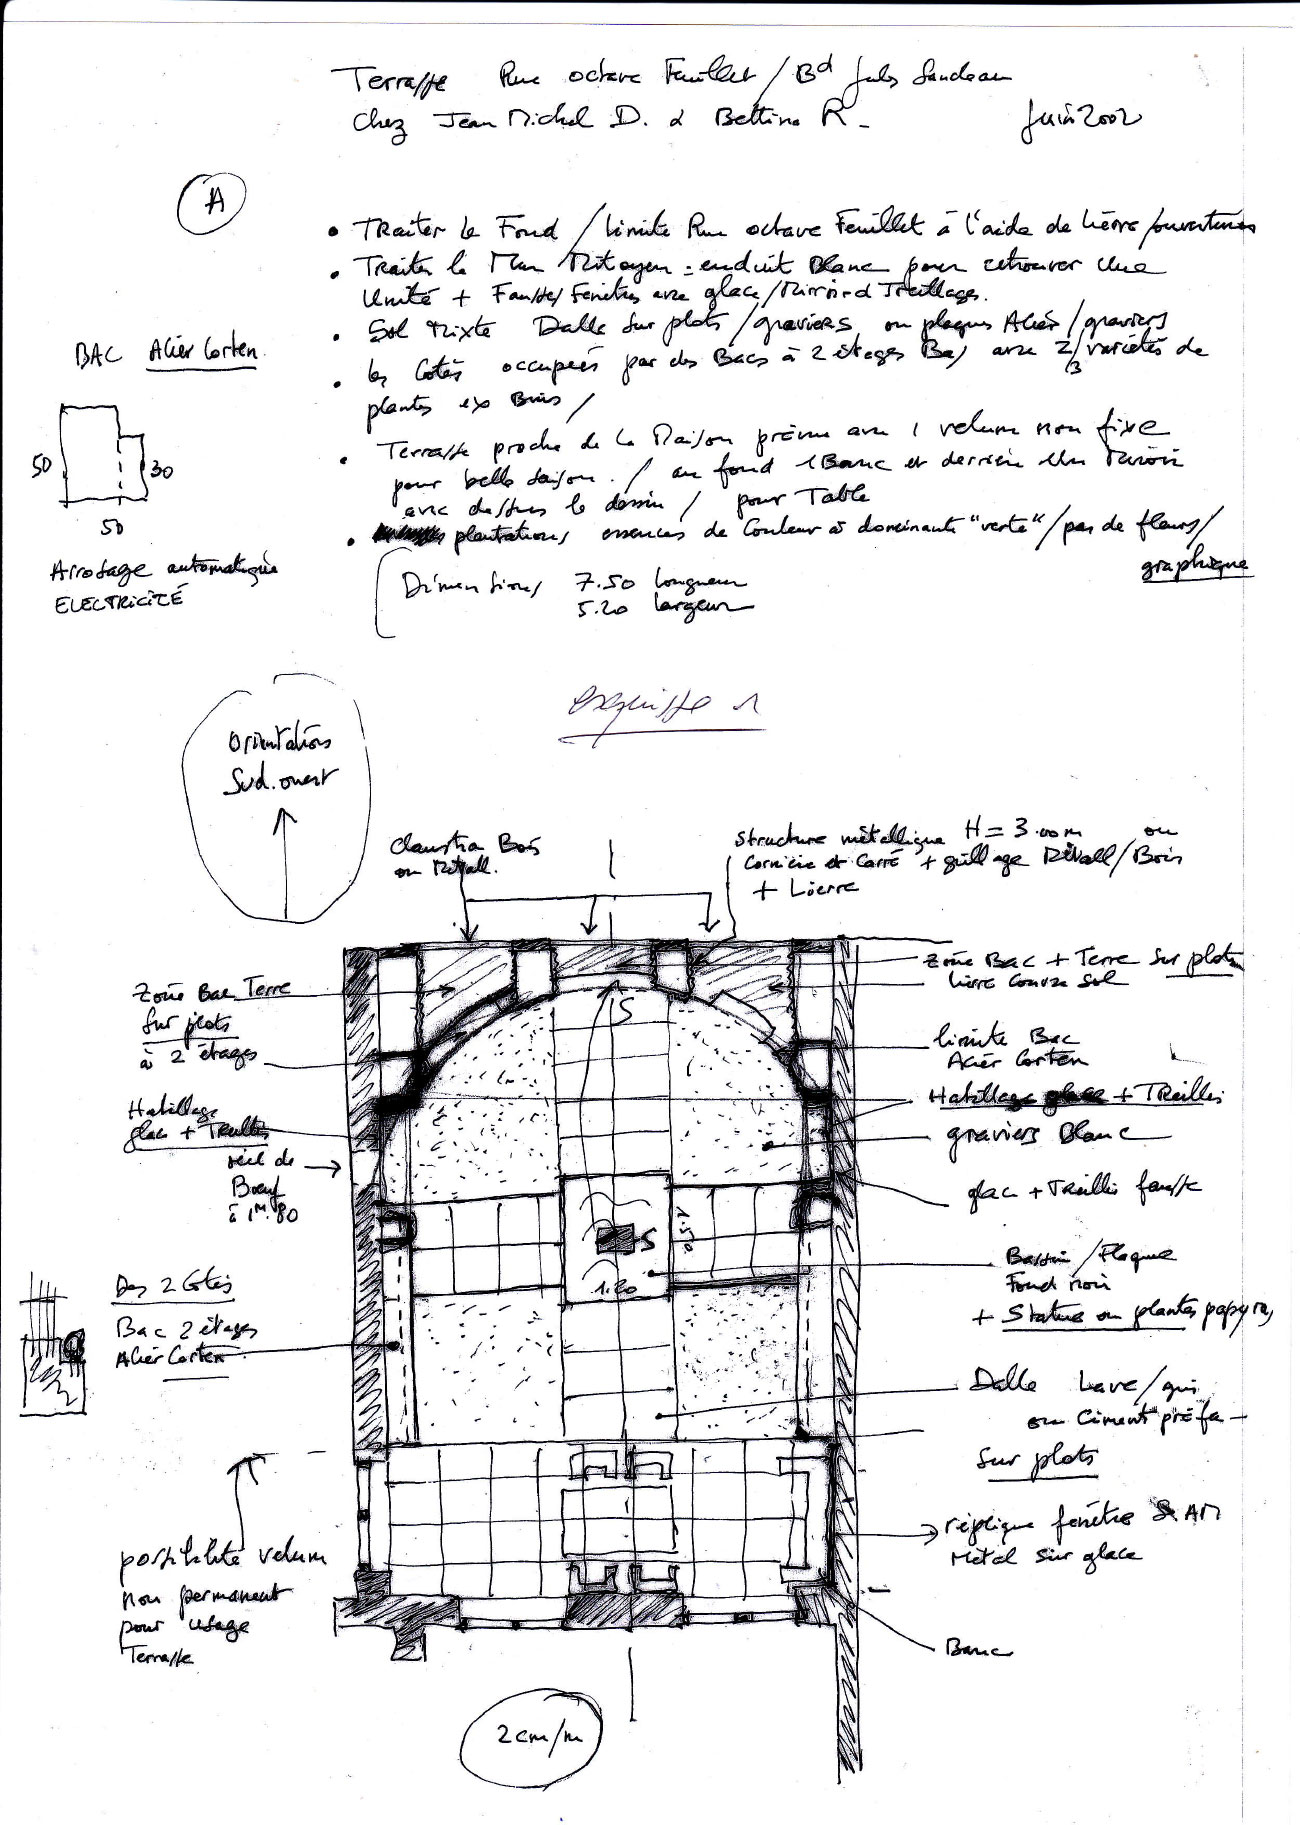 Terrasse Rue octave Feuillet / Bd Jules Sandeau
chez Jean Michel D. & Bettina R.
Juin 2002
A
• Traiter le Fond / limite Rue octave Feuillet à l'aide de lierre / ouvertures
• Traiter le Mur Mitoyen = enduit Blanc pour retrouver une
Unité + Fausses Fenêtres avec glace / Miroir et Treillages.
• Sol Mixte Dalle sur plots / graviers ou plaques Acier / graviers
• les Cotés occupées par des Bacs à 2 étages Bas avec 2/3 variétés de
plantes ex Buis /
• Terrasse proche de la Maison prévue avec 1 velum non fixe
pour belle saison. / au fond 1 Banc et derrière un Miroir
avec dessus le dessin / pour Table
• plantations essences de Couleur à dominante "verte" / pas de fleurs /
graphique
Dimensions 7.50 longueur
5.20 largeur
BAC Acier Corten
50
30
50
Arrosage automatique
ELECTRICITÉ
esquisse 1
Orientations
Sud.ouest
Claustra Bois
ou Métall.
Structure métallique H = 3.00m ou
Cornière et Carré + grillage Métall / Bois
+ Lierre
Zone Bac Terre
Sur plots
à 2 étages
Habillage
glace + Treillis
oeil de
Boeuf
à 1M.80
Des 2 Cotés
Bac 2 étages
Acier Corten
possibilité velum
non permanent
pour usage
Terrasse
Zone Bac + Terre Sur plots
lierre Couvre sol
limite Bac
Acier Corten
Habillage glace + Treillis
graviers Blanc
glace + Treillis fausse
Bassin / Plaque
Fond noir
+ Statue ou plantes papyrus
Dalle Lave / gris
ou Ciment préfa
Sur plots
réplique fenêtre
Métal sur glace
Banc
S
S
1.50
1.20
2 cm/m